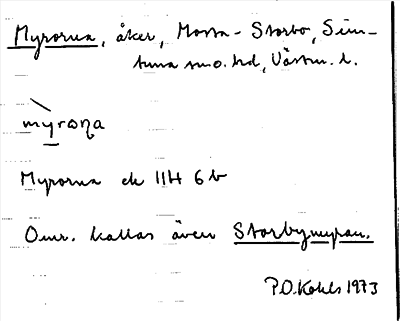 Myrorna, åker, Mossa-Storbo, Sim-
tuna sn o. hd, Västm. l.
myroṇa
Myrorna ek 11H 6b
Omr. kallas även Storbymyran.
P.O. Kohls 1973